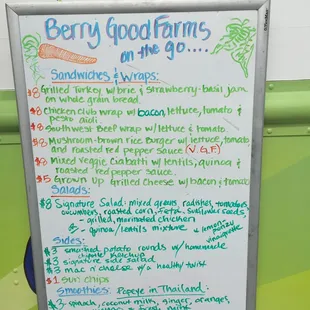 Berry Good Farms
on the go....
Sandwiches & Wraps:
$8 Grilled Turkey w/ brie & strawberry-basil jam
on whole grain bread.
$8 Chicken Club wrap w/ bacon, lettuce, tomato &
pesto aioli
$8 Southwest Beef wrap w/ lettuce & tomato
Mushroom-brown Rice Burger w/ lettuce, tomato
and roasted red pepper sauce (V.G.F)
$8 Mixed veggie Ciabatti w/ lentils, quinoa &
roasted red pepper sauce.
$5 Grown Up Grilled Cheese w/ bacon & tomato
Salads:
$8 Signature Salad: mixed grains, radishes, tomatoes,
cucumbers, roasted corn, Feta, sunflower seeds,
- grilled, marinated chicken
- quinoa/lentils mixture
Sides:
$3 smashed potato rounds w/ homemade
ketchup
$3 signature side salad
$3 mac n' cheese w/ a healthy twist
$1 Sun chips
Smoothies: Popeye in Thailand:
$3 - spinach, coconut milk, ginger, oranges,